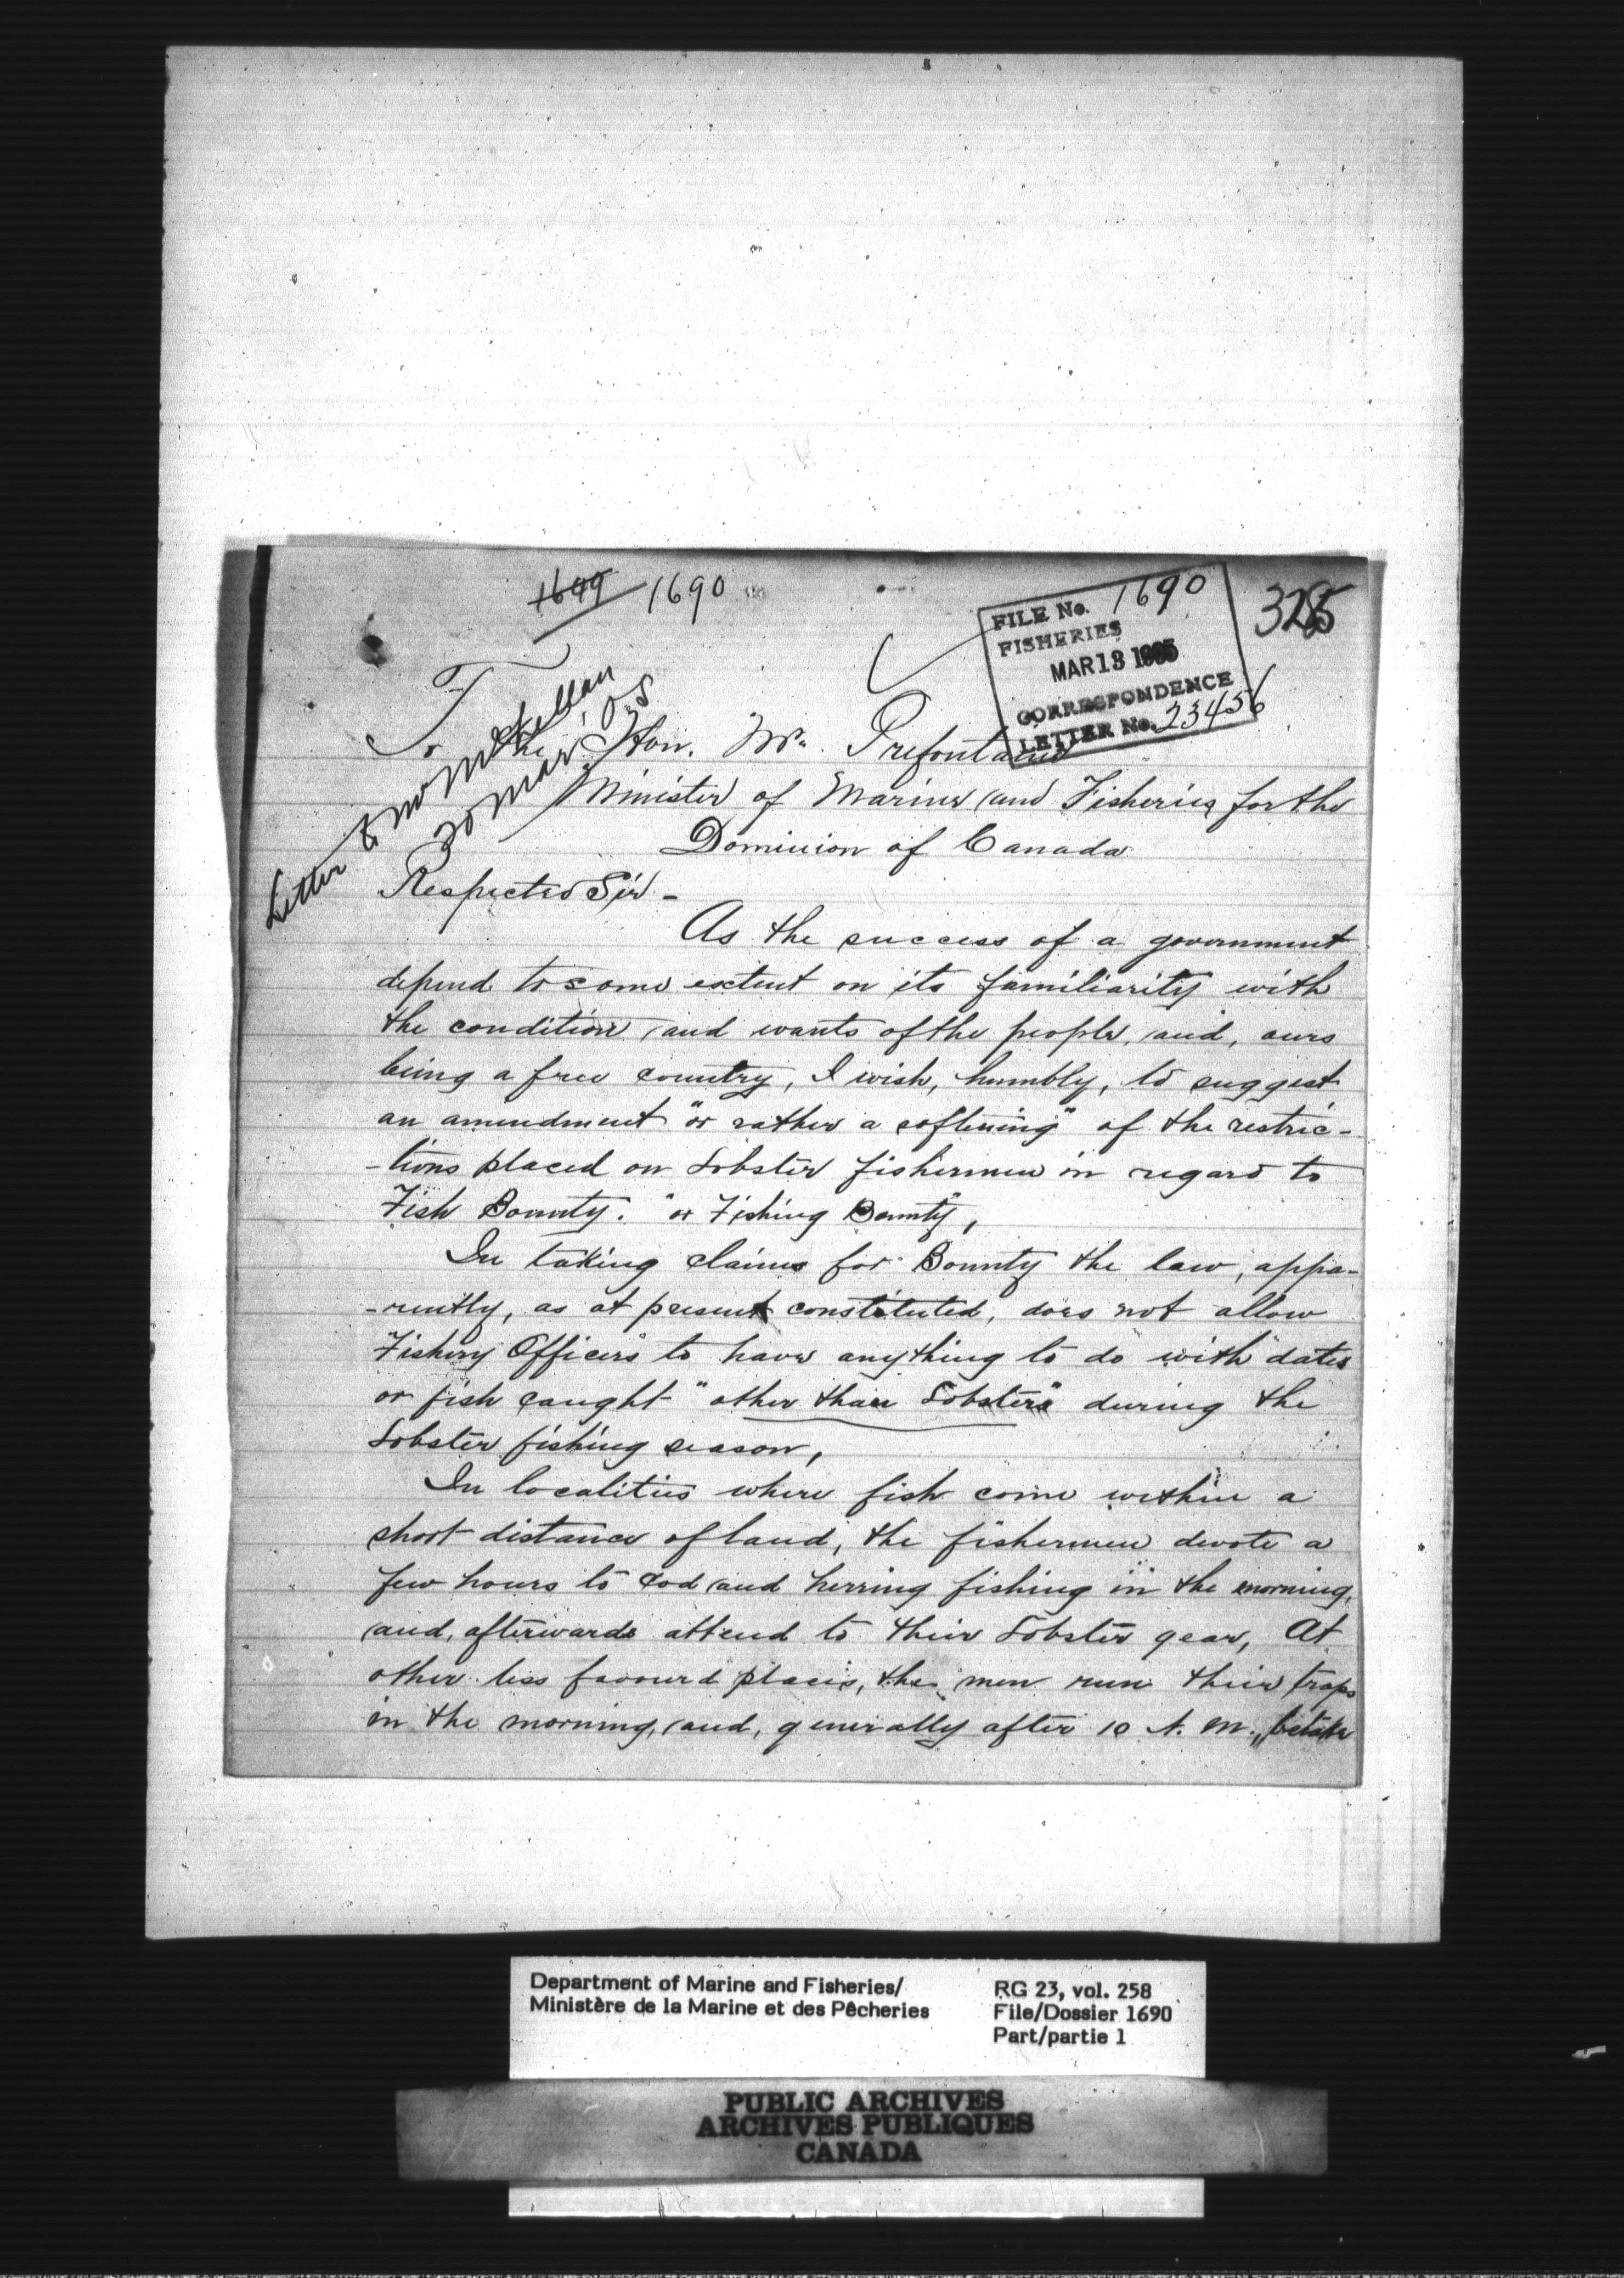 1699 1690
FILE No. 1690
FISHERIES
MAR 13 1905
CORRESPONDENCE
LETTER No. 23456
Letter to Mr McLellan
30 Mar '05
To the Hon. Mr. Prefontaine
Minister of Marine and Fisheries for the
Dominion of Canada
Respected Sir -
As the success of a government
depend to some extent on its familiarity with
the condition and wants of the people, and, ours
being a free country, I wish, humbly, to suggest
an amendment "or rather a softening" of the restric-
-tions placed on Lobster fishermen in regard to
Fish Bounty. "or Fishing Bounty",
In taking claims for Bounty the law, appa-
-rently, as at present constituted, does not allow
Fishery Officers to have anything to do with dates
or fish caught "other than Lobsters" during the
Lobster fishing season,
In localities where fish come within a
short distance of land, the fishermen devote a
few hours to Cod and herring fishing in the morning,
and, afterwards attend to their Lobster gear, At
other less favourd places, the men run their traps
in the morning, and, generally after 10 A. M., betake
Department of Marine and Fisheries/
Ministère de la Marine et des Pêcheries
RG 23, vol. 258
File/Dossier 1690
Part/partie 1
PUBLIC ARCHIVES
ARCHIVES PUBLIQUES
CANADA